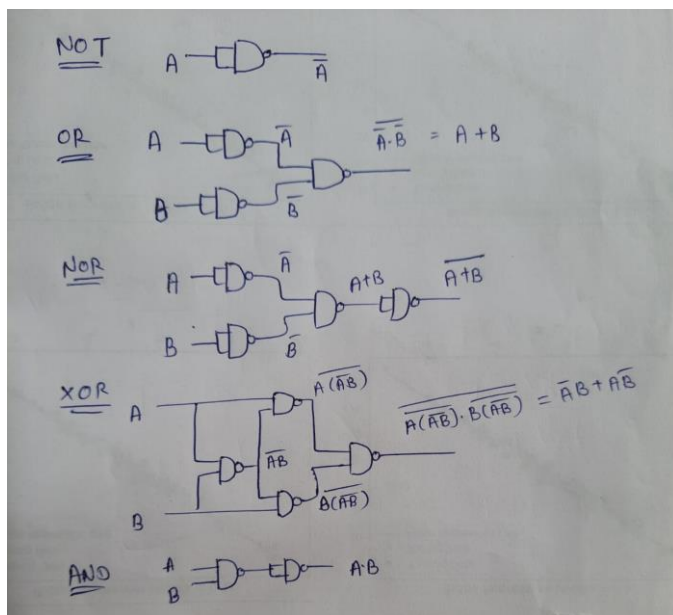 NOT
A A̅
OR
A A̅ \overline{A̅·B̅} = A+B
B B̅
NOR
A A̅ A+B \overline{A+B}
B B̅
XOR
A \overline{A(\overline{AB})}
\overline{AB} \overline{\overline{A(\overline{AB})}·\overline{B(\overline{AB})}} = A̅B+AB̅
B \overline{B(\overline{AB})}
AND
A A·B
B